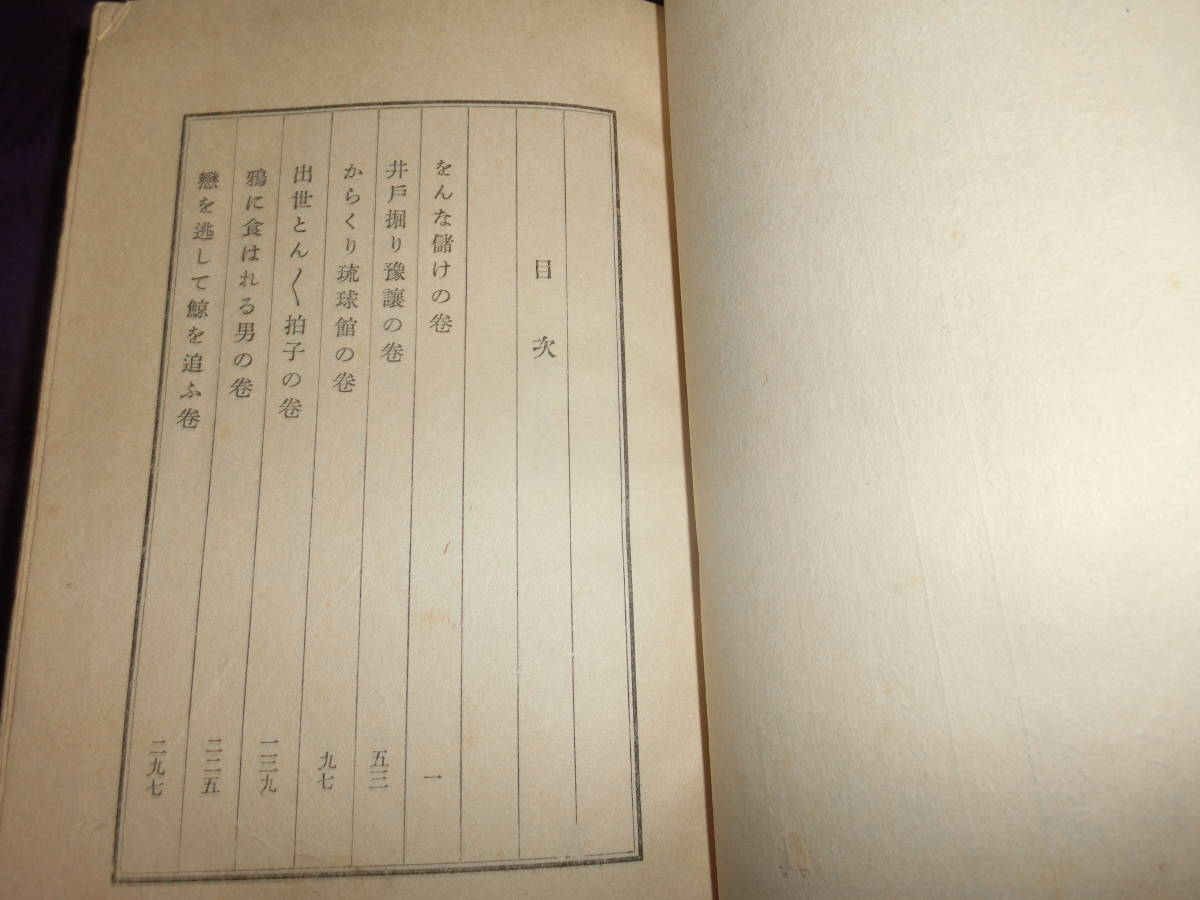 目次
をんな儲けの卷 一
井戸掘り豫讓の卷 五三
からくり琉球館の卷 九七
出世とん〱拍子の卷 一三九
鴉に食はれる男の卷 二二五
戀を逃して鯨を追ふ卷 二九七